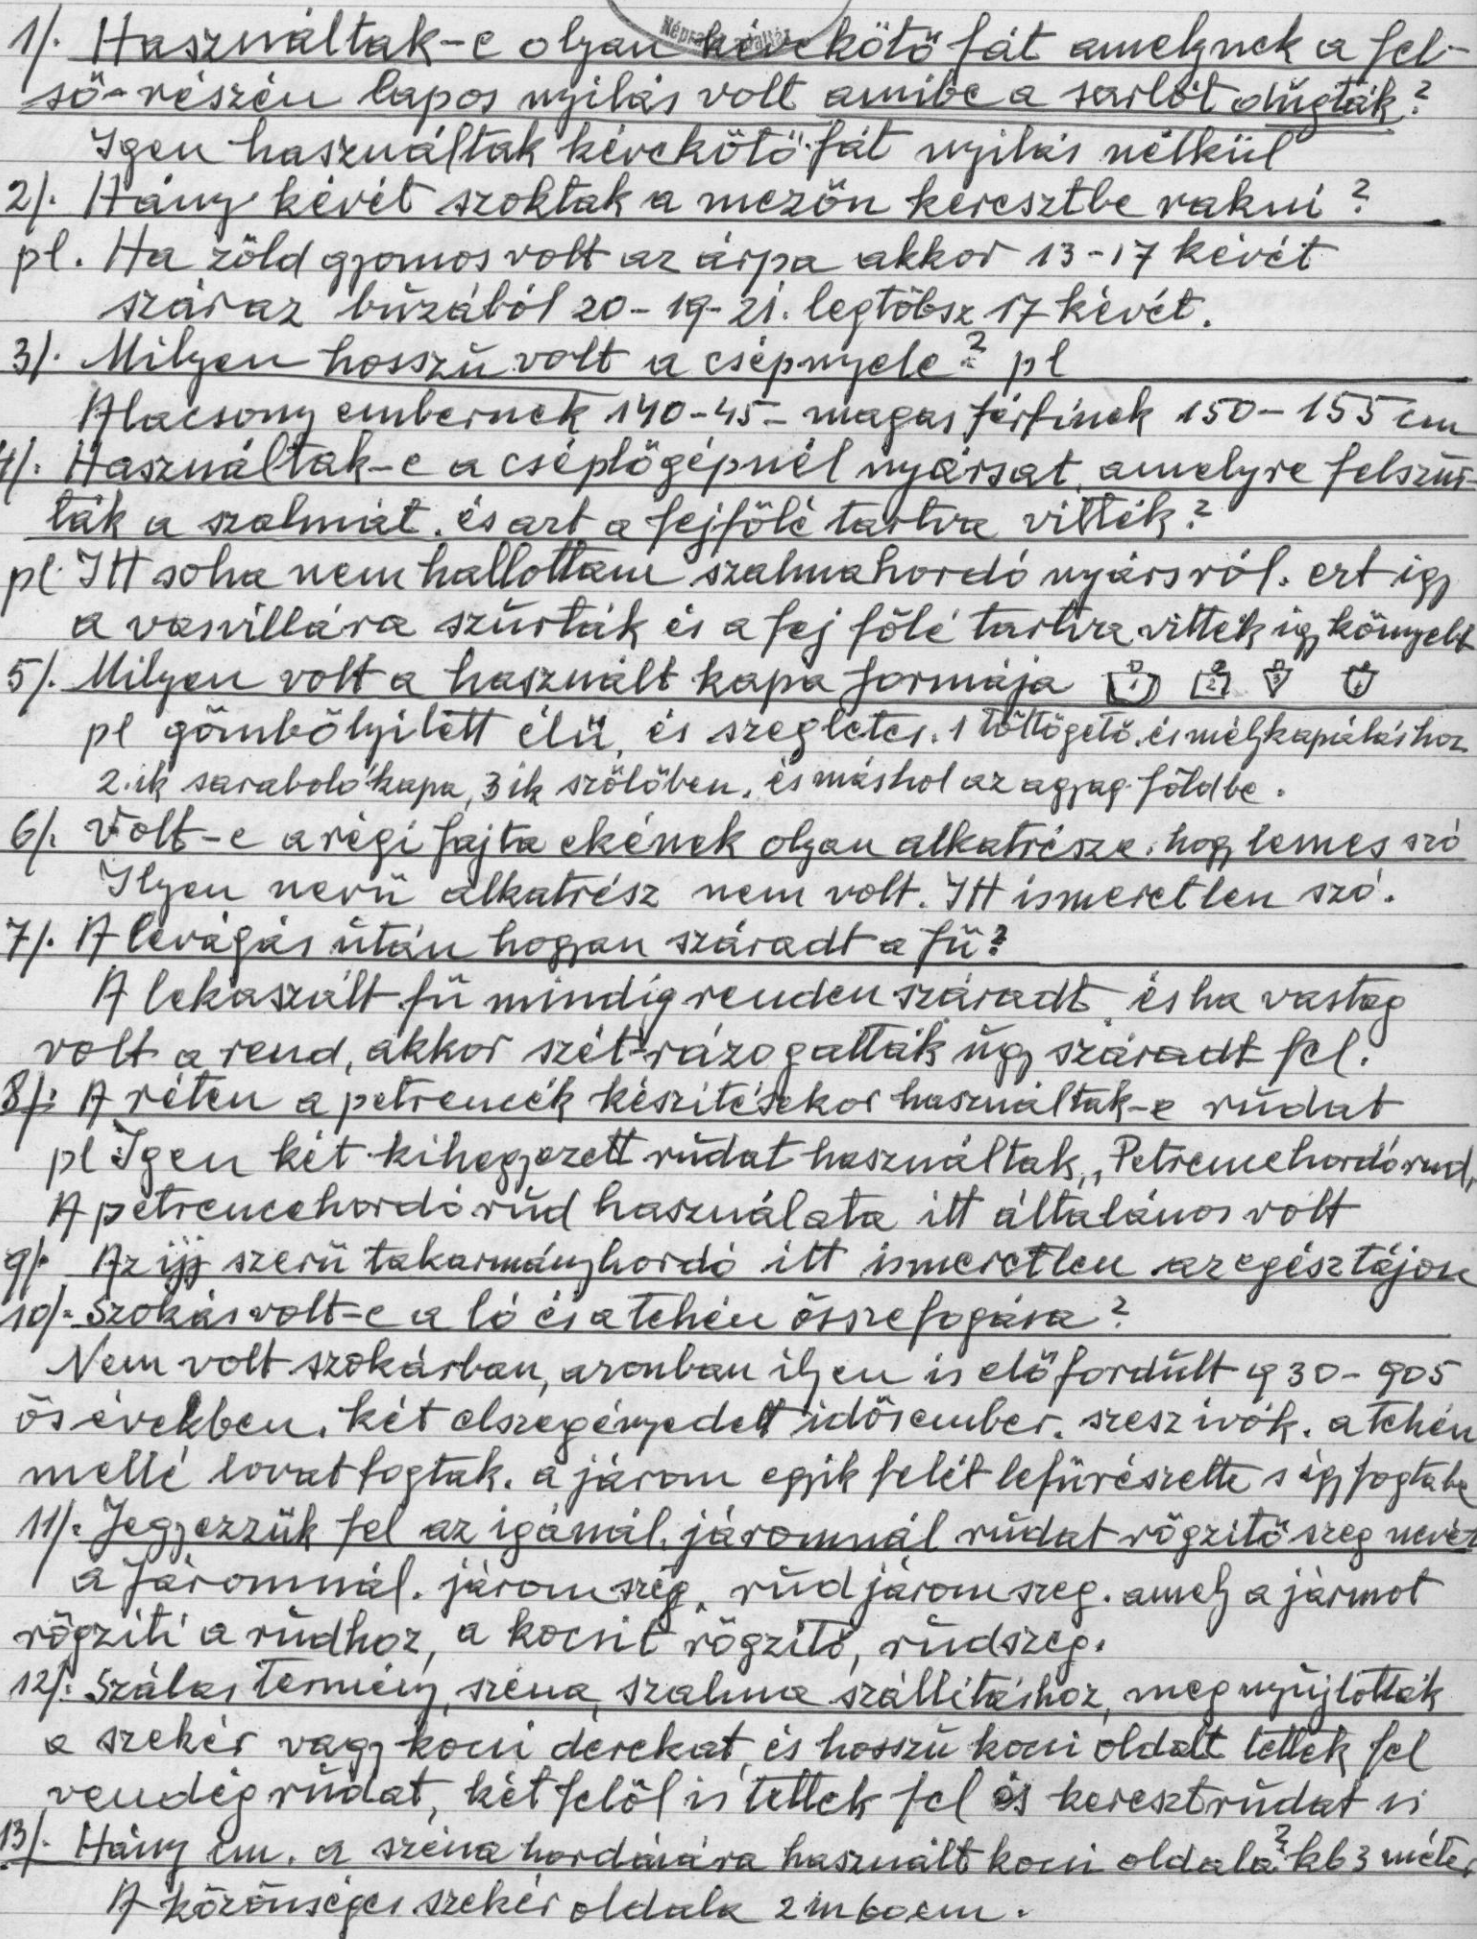 1/. Használtak-e olyan kévekötő fát amelynek a fel-
ső-részén lapos nyilás volt amibe a sarlót dúgták?
Igen használtak kévekötő fát nyilás nélkül
2/. Hány kévét szoktak a mezőn keresztbe rakni?
pl. Ha zöld gyomos volt az árpa akkor 13-17 kévét
száraz búzából 20-19-21. legtöbsz 17 kévét.
3/. Milyen hosszú volt a csépnyele? pl
Alacsony embernek 140-45- magas férfinek 150-155 cm
4/. Használtak-e a cséplőgépnél nyársat, amelyre felszúr-
ták a szalmát. és azt a fejfölé tartva vitték?
pl. Itt soha nem hallottam szalmahordó nyársról. ezt így
a vasvillára szúrták és a fej fölé tartva vitték így könyebb
5/. Milyen volt a használt kapa formája 1 2 3
pl gömbölyített élű, és szegletes. 1 töltögető. és mélykapáláshoz
2.ik saraboló kapa, 3ik szőlőben. és máshol az agyag földbe.
6/. Volt-e a régi fajta ekének olyan alkatrésze. hogy lemes szó
Ilyen nevű alkatrész nem volt. Itt ismeretlen szó.
7/. A levágás után hogyan száradt a fű?
A lekaszált fű mindig renden száradt, és ha vastag
volt a rend, akkor szét-rázogatták úgy száradt fel.
8/. A réten a petrencék készítésekor használtak-e rúdat
pl Igen két kihegyezett rúdat használtak „Petrencehordórúd„
A petrencehordó rúd használata itt általános volt
9/. Az íjj szerű takarmányhordó itt ismeretlen az egész tájon
10/. Szokás volt-e a ló és a tehén összefogása?
Nem volt szokásban, azonban ilyen is előfordúlt 930-905
ös években. két elszegényedett idősember. szeszivók. a tehén
mellé lovat fogtak. a járom egyik felét lefűrészelte s így fogta be
11/. Jegyezzük fel az igánál, járomnál rúdat rögzítő szeg nevét
a Járomnál. járomszég, rúdjáromszeg. amely a jármot
rögzíti a rúdhoz, a kocsit rögzítő, rúdszeg.
12/. Szálas termény, széna, szalma szállításhoz, megnyújtották
a szekér vagy kocsi derekat, és hosszú kocsi oldalt tettek fel
vendég rúdat, kétfelől is tettek fel és keresztrúdat is
13/. Hány cm. a széna hordására használt kocsi oldala? kb 3 méter
A közönséges szekér oldala 2 m 60 cm.